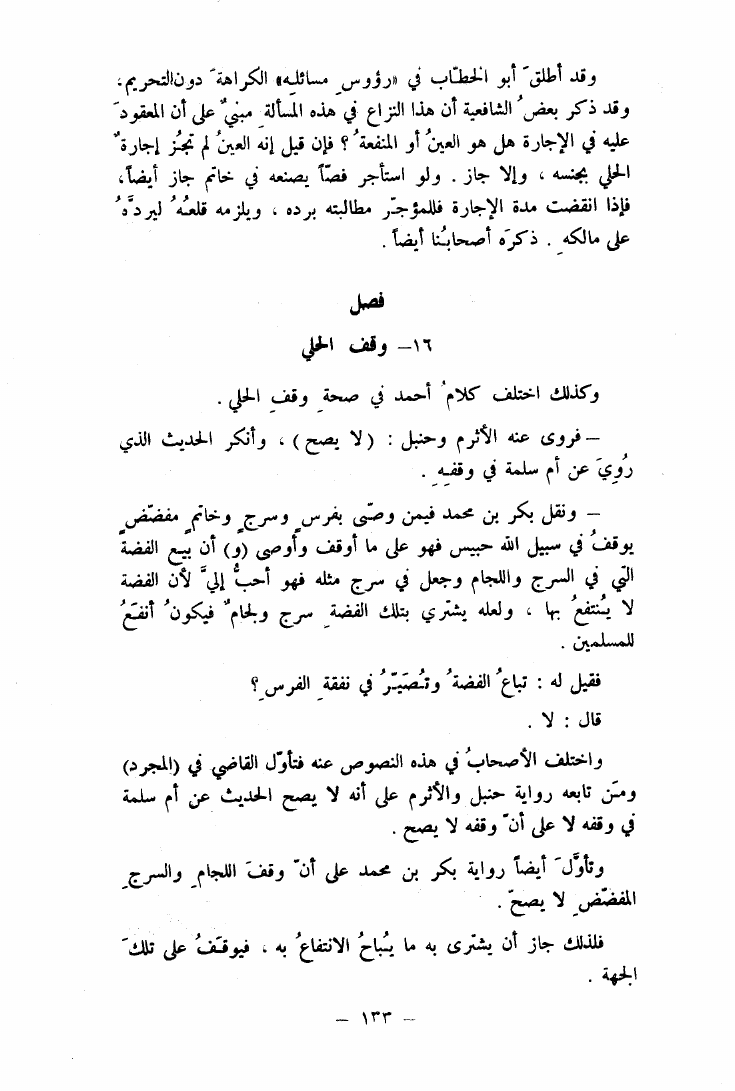 وقد أطلقَ أبو الخطّاب في «رؤوسِ مسائله» الكراهةَ دون التحريم،
وقد ذكر بعضُ الشافعية أن هذا النزاع في هذه المسألة مبنيٌ على أن المعقودَ
عليه في الإجارة هل هو العينُ أو المنفعةُ؟ فإن قيل إنه العينُ لم تجُز إجارةٌ
الحلي بجنسه ، وإلا جاز . ولو استأجر فصّاً يصنعه في خاتم جاز أيضاً،
فإذا انقضت مدة الإجارة فللمؤجّر مطالبته برده ، ويلزمه قلعُهُ ليردَّهُ
على مالكهِ . ذكرَه أصحابُنا أيضاً .
فصل
١٦– وقف الحلي
وكذلك اختلف كلامُ أحمد في صحةِ وقفِ الحلي .
– فروى عنه الأثرم وحنبل : (لا يصح) ، وأنكر الحديث الذي
رُوِيَ عن أم سلمة في وقفهِ .
– ونقل بكر بن محمد فيمن وصّى بفرسٍ وسرجٍ وخاتمٍ مفضّضٍ
يوقفُ في سبيل الله حبيس فهو على ما أوقف وأوصى (و) أن بيع الفضة
التي في السرج واللجام وجعل في سرج مثله فهو أحبُّ إليَّ لأن الفضة
لا يُنتفعُ بها ، ولعله يشتري بتلك الفضةِ سرج ولجامٌ فيكونُ أنفعُ
للمسلمين .
فقيل له : تباعُ الفضةُ وتُصَيّرُ في نفقةِ الفرسِ؟
قال : لا .
واختلف الأصحابُ في هذه النصوص عنه فتأوّل القاضي في (المجرد)
ومَن تابعه رواية حنبل والأثرم على أنه لا يصح الحديث عن أم سلمة
في وقفه لا على أنّ وقفه لا يصح .
وتأوَّلَ أيضاً رواية بكر بن محمد على أنّ وقفَ اللجامِ والسرجِ
المفضّضِ لا يصحّ .
فلذلك جاز أن يشترى به ما يُباحُ الانتفاعُ به ، فيوقَفُ على تلكَ
الجهة .
– ١٣٣ –